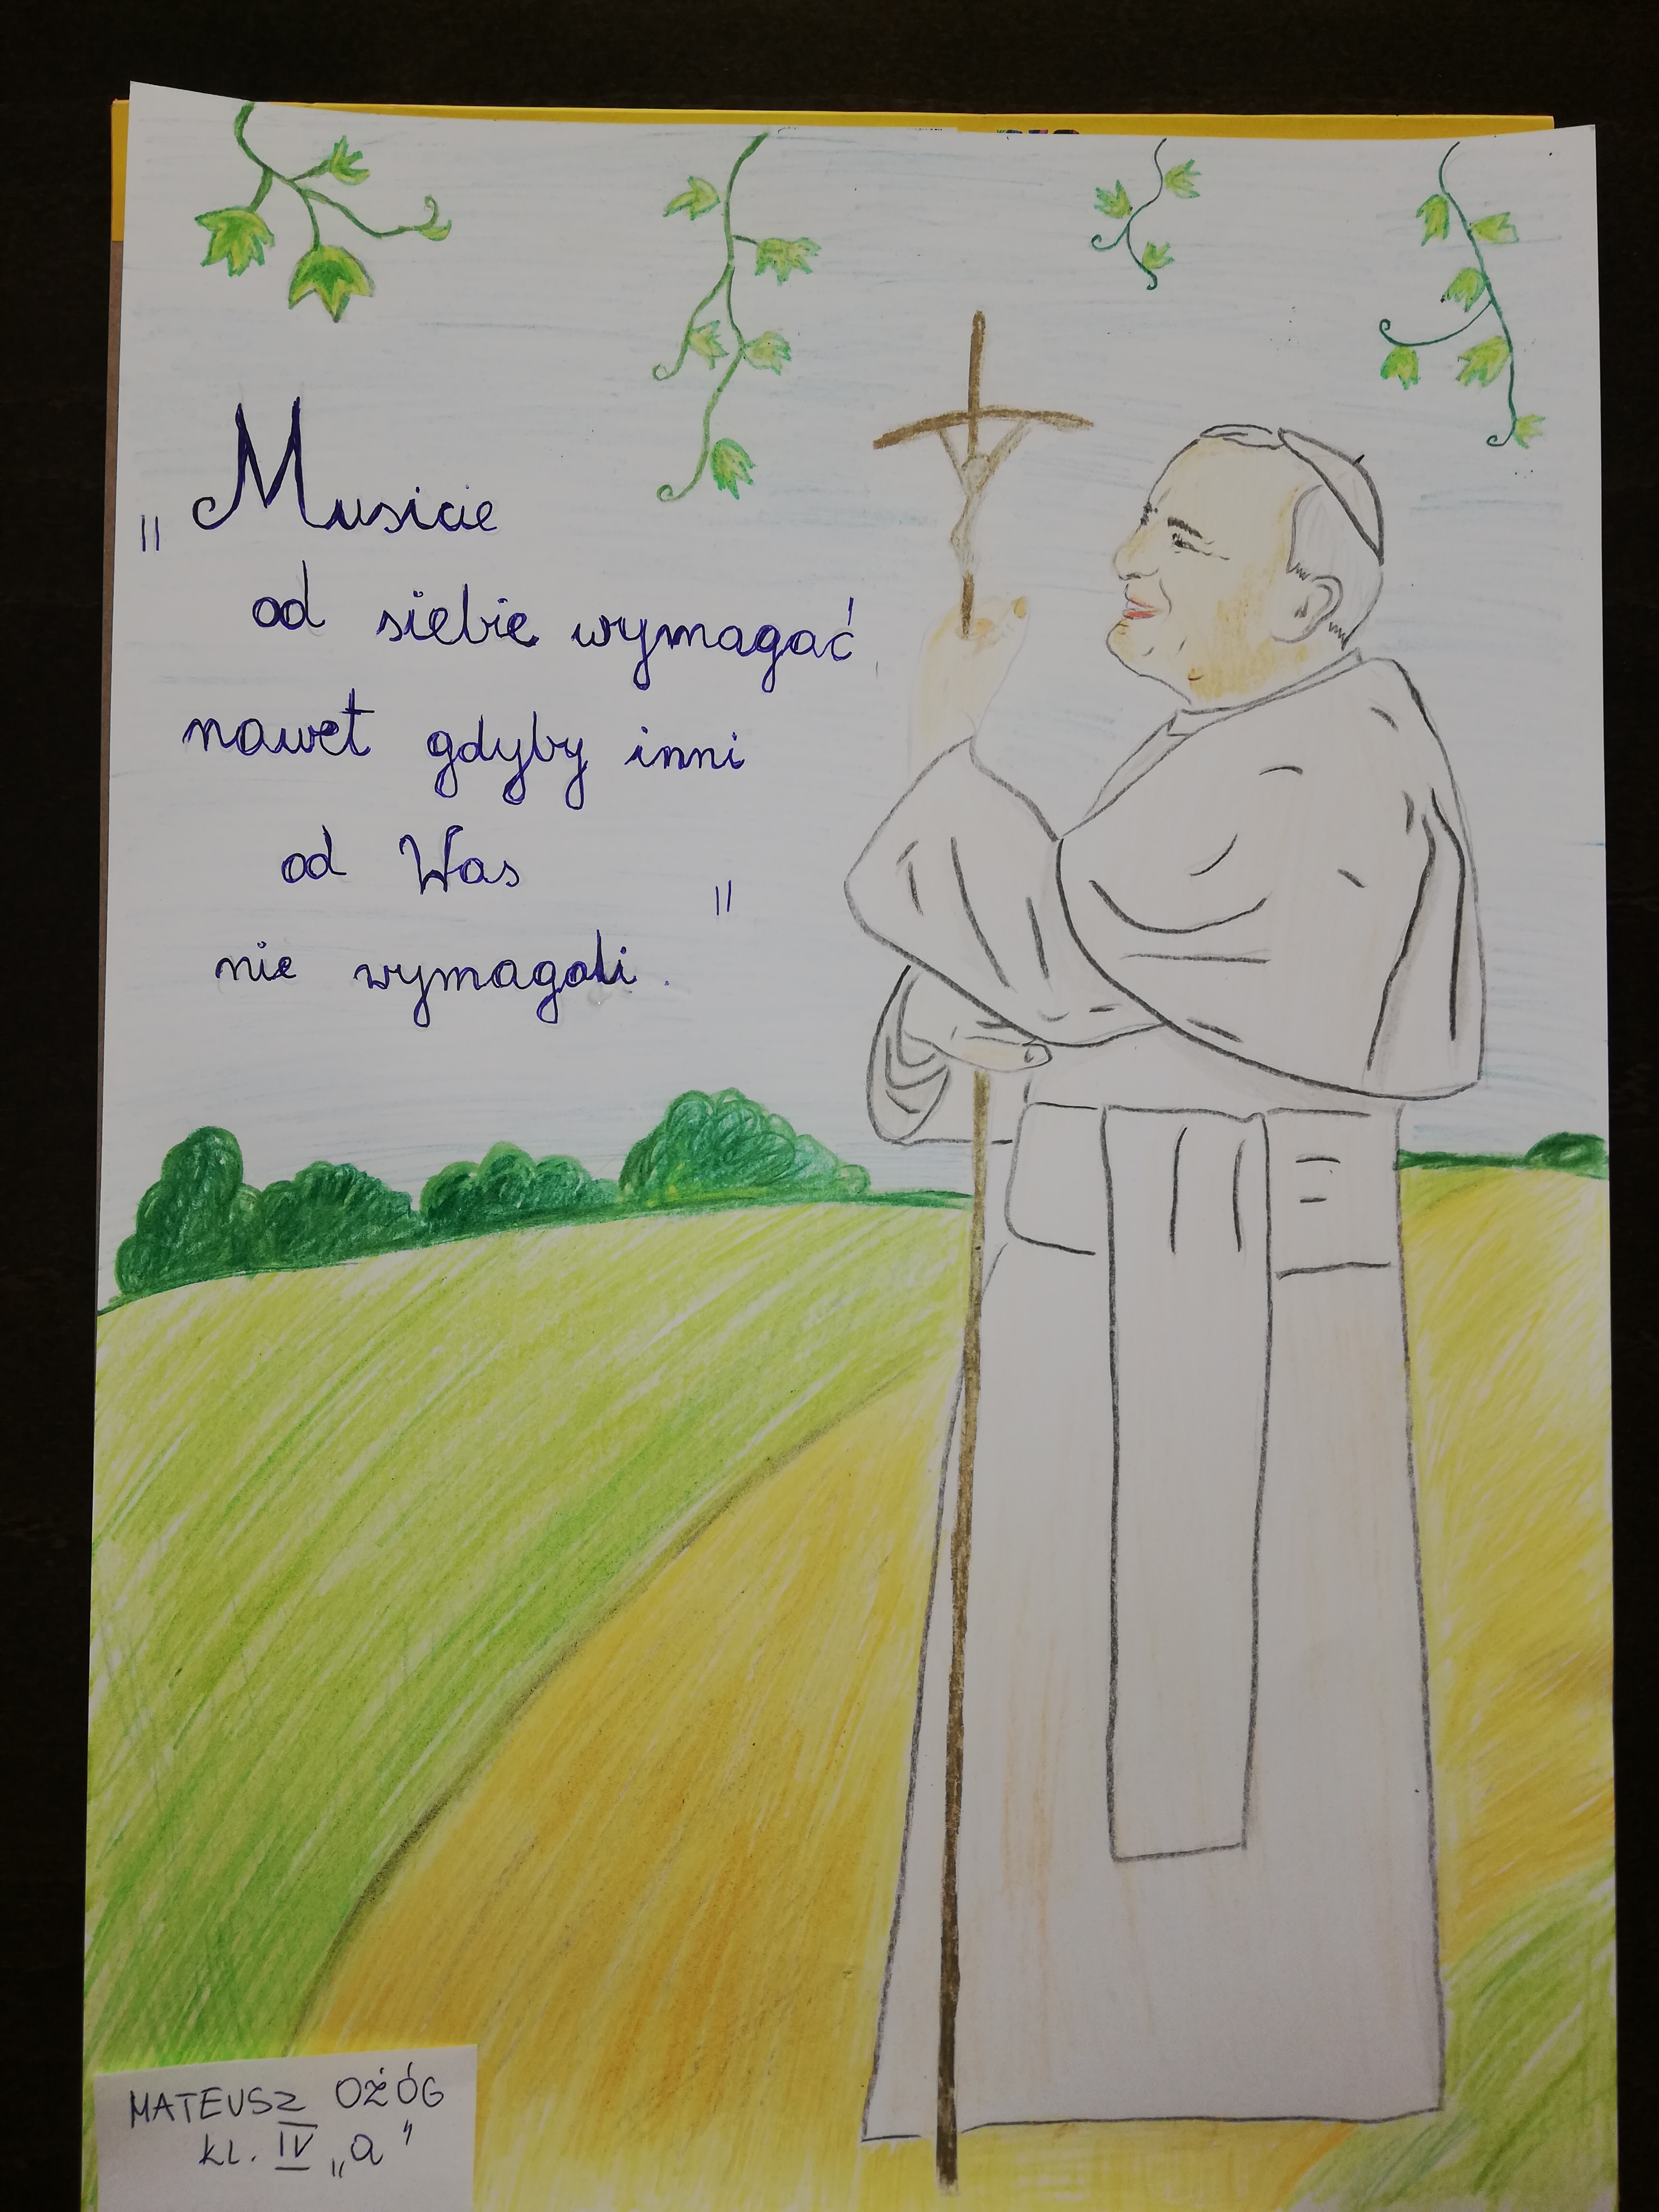 „Musicie
od siebie wymagać
nawet gdyby inni
od Was
nie wymagali."
MATEUSZ OŻÓG
KL. IV „a"